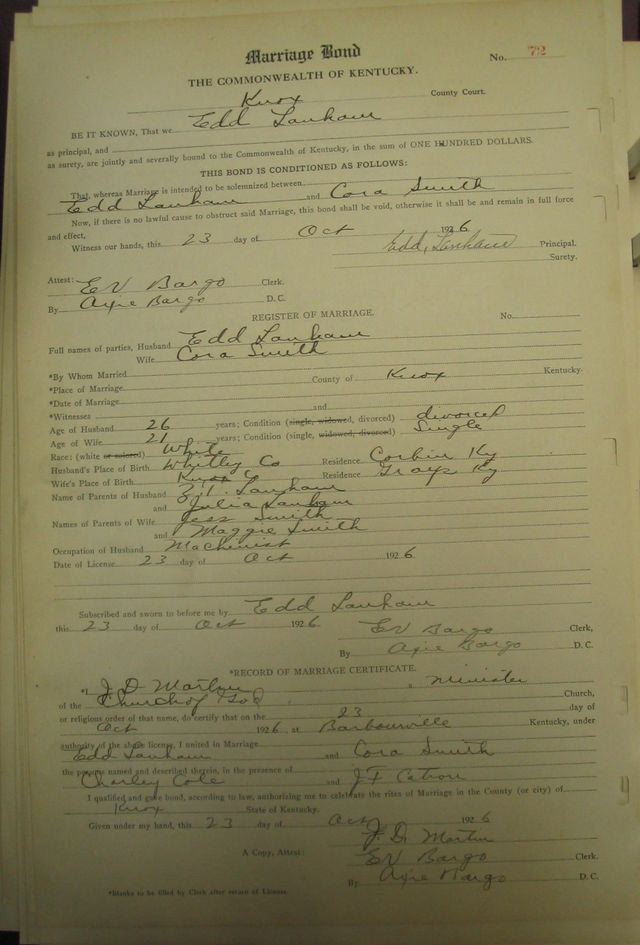 Marriage Bond
No. 72
THE COMMONWEALTH OF KENTUCKY.
Knox County Court.
BE IT KNOWN, That we Edd Lanham
as principal, and
as surety, are jointly and severally bound to the Commonwealth of Kentucky, in the sum of ONE HUNDRED DOLLARS.
THIS BOND IS CONDITIONED AS FOLLOWS:
That, whereas Marriage is intended to be solemnized between
Edd Lanham and Cora Smith
Now, if there is no lawful cause to obstruct said Marriage, this bond shall be void, otherwise it shall be and remain in full force
and effect,
Witness our hands, this 23 day of Oct 1926
Edd, Lanham Principal.
Surety.
Attest: EV Bargo Clerk.
By Axie Bargo D.C.
REGISTER OF MARRIAGE.
No.
Full names of parties, Husband Edd Lanham
Wife Cora Smith
*By Whom Married
*Place of Marriage County of Knox Kentucky.
*Date of Marriage
*Witnesses and
Age of Husband 26 years; Condition (single, widowed, divorced) divorced
Age of Wife 21 years; Condition (single, widowed, divorced) Single
Race: (white or colored) White
Husband's Place of Birth Whitley Co Residence Corbin Ky
Wife's Place of Birth Knox Co Residence Grays Ky
Name of Parents of Husband Z.T. Lanham
and Julia Lanham
Names of Parents of Wife Jess Smith
and Maggie Smith
Occupation of Husband Machinist
Date of License 23 day of Oct 1926
Subscribed and sworn to before me by Edd Lanham
this 23 day of Oct 1926
EV Bargo Clerk,
By Axie Bargo D.C.
*RECORD OF MARRIAGE CERTIFICATE.
*I, J. D. Martin a Minister
of the Church of God Church,
or religious order of that name, do certify that on the 23 day of
Oct 1926 at Barbourville Kentucky, under
authority of the above license, I united in Marriage
Edd Lanham and Cora Smith
the persons named and described therein, in the presence of
Charley Cole and J.F. Catron
I qualified and gave bond, according to law, authorizing me to celebrate the rites of Marriage in the County (or city) of
Knox State of Kentucky.
Given under my hand, this 23 day of Oct 1926
J. D. Martin
A Copy, Attest: EV Bargo Clerk.
By Axie Bargo D.C.
*Blanks to be filled by Clerk after return of License.